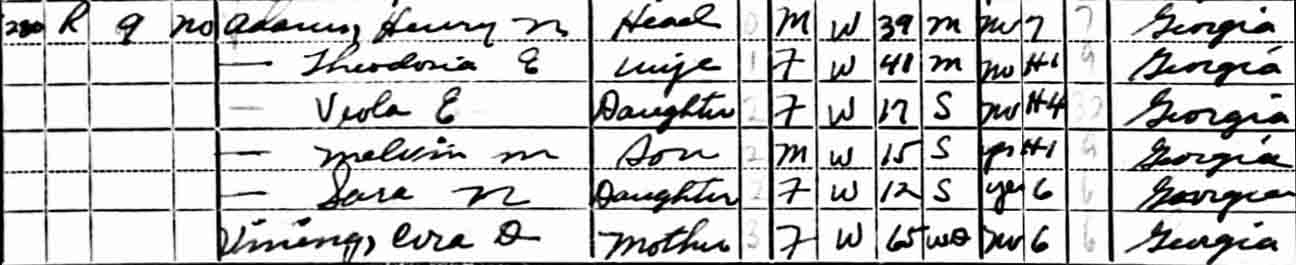 280 R 9 no Adams, Henry N Head 0 M W 39 M no 7 7 Georgia
— Theodosia E wife 1 F W 41 M no H-1 9 Georgia
— Viola E Daughter 2 F W 17 S no H-4 30 Georgia
— Melvin M Son 2 M W 15 S yes H-1 9 Georgia
— Sara N Daughter 2 F W 12 S yes 6 6 Georgia
Vining, Cora D Mother 3 F W 65 Wd no 6 6 Georgia